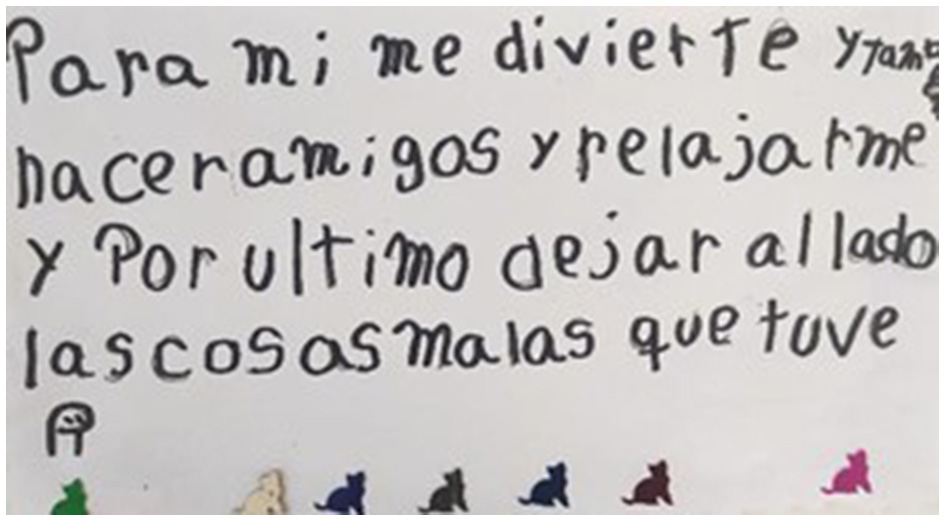 Para mi me divierte y tam
hacer amigos y relajarme
y Por ultimo dejar al lado
las cosas malas que tuve